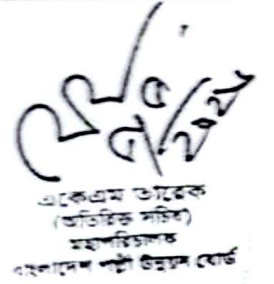 একেএম তারেক
(অতিরিক্ত সচিব)
মহাপরিচালক
বাংলাদেশ পল্লী উন্নয়ন বোর্ড